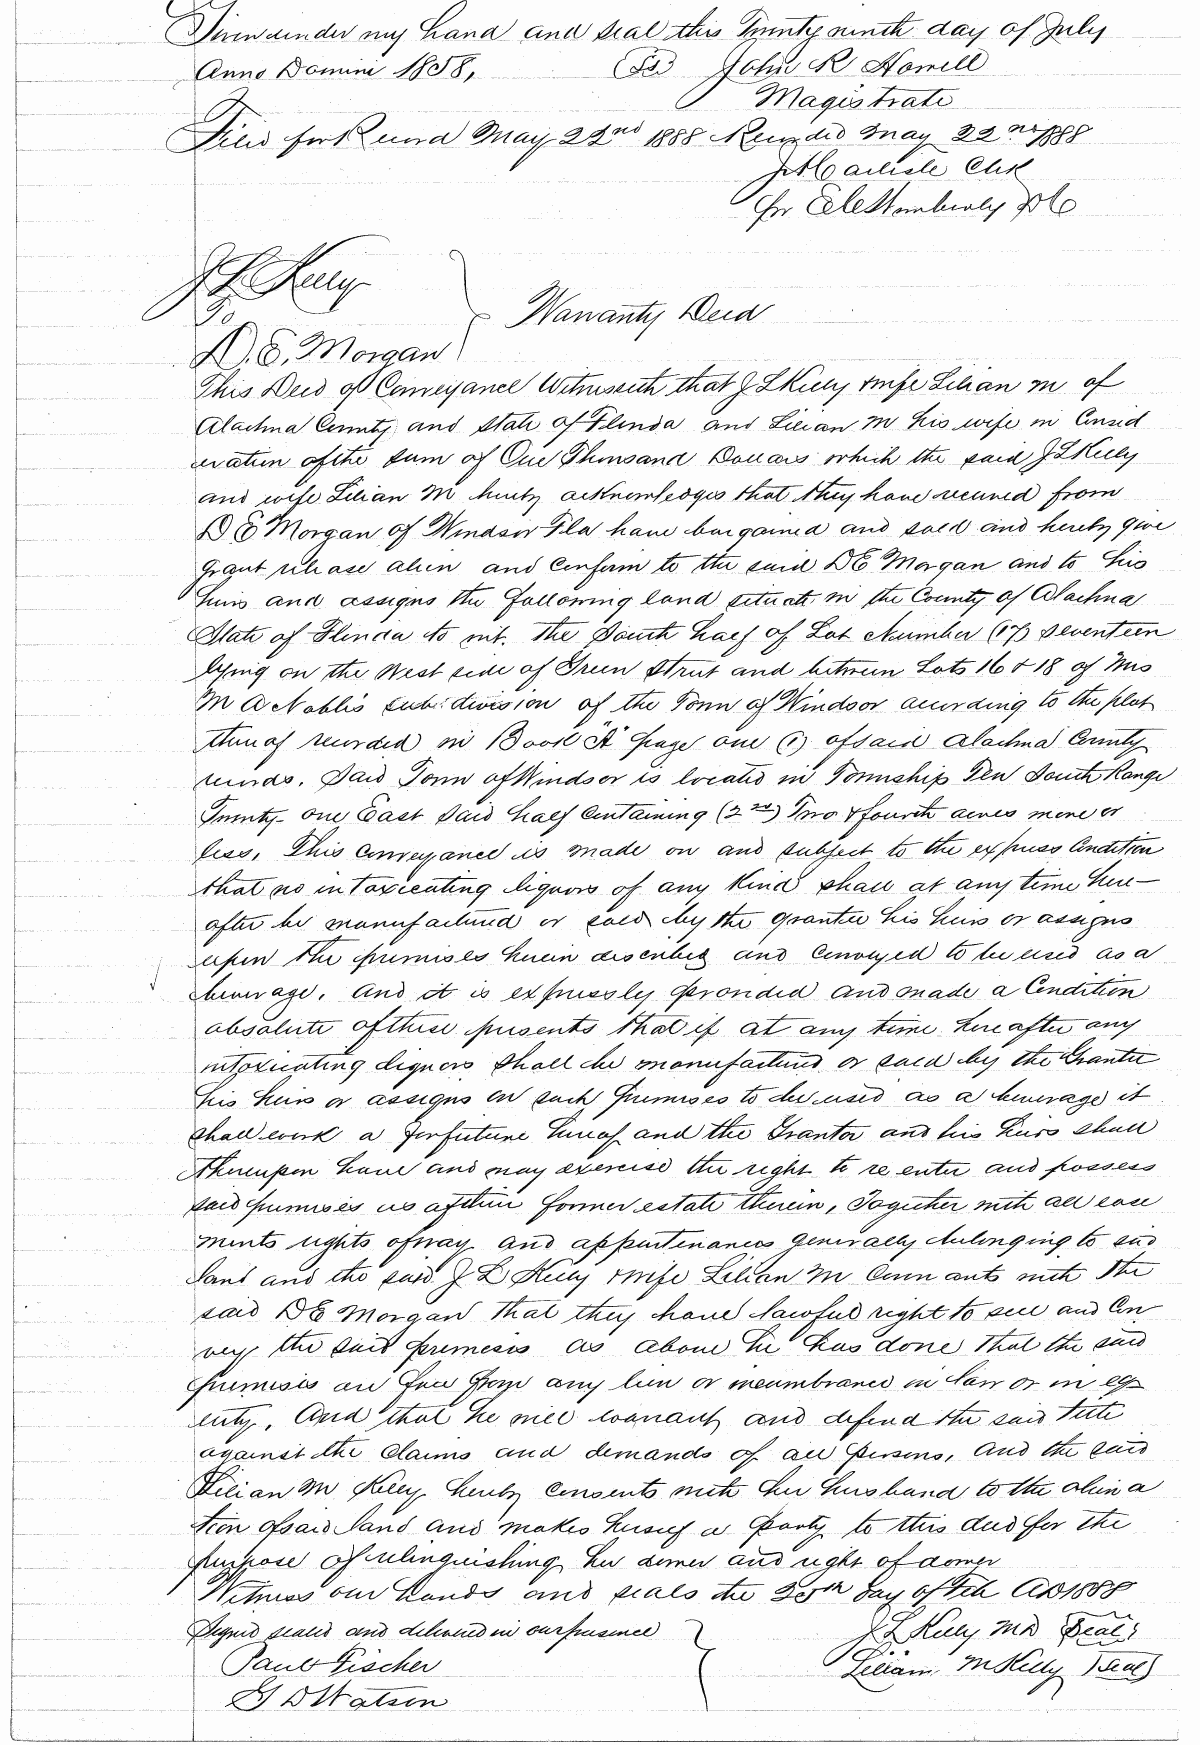 Given under my hand and seal this Twenty ninth day of July
Anno Domini 1858, (LS) John R Howell
Magistrate
Filed for Record May 22nd 1888 Recorded May 22nd 1888
Clk
for
J L Kelly
To
Warranty Deed
D. E. Morgan
This Deed of Conveyance Witnesseth that J L Kelly & wife Lilian M of
Alachua County and State of Florida and Lilian M his wife in Consid
eration of the sum of One Thousand Dollars which the said J L Kelly
and wife Lilian M hereby acknowledges that they have received from
D E Morgan of Windsor Fla have bargained and sold and hereby give
grant release alien and confirm to the said D E Morgan and to his
heirs and assigns the following land situate in the County of Alachua
State of Florida to wit. The South half of Lot Number (17) Seventeen
lying on the West side of Green Street and between Lots 16 & 18 of Mrs
M A Nobles sub-division of the Town of Windsor according to the plat
thereof recorded in Book "A" page one (1) of said Alachua County
records. Said Town of Windsor is located in Township Ten South Range
Twenty-one East Said half containing Two & fourth acres more or
less, This conveyance is made on and subject to the express Condition
that no intoxicating liquors of any Kind shall at any time here-
after be manufactured or sold by the grantee his heirs or assigns
upon the premises herein described and conveyed to be used as a
beverage. And it is expressly provided and made a Condition
absolute of these presents that if at any time hereafter any
intoxicating liquors shall be manufactured or sold by the Grantee
his heirs or assigns on such premises to be used as a beverage it
shall work a forfeiture hereof and the Grantor and his heirs shall
thereupon have and may exercise the right to re enter and possess
said premises as of their former estate therein, Together with all ease
ments rights of way and appurtenances generally belonging to said
land and the said J L Kelly & wife Lilian M Covenants with the
said D E Morgan that they have lawful right to sell and Con
vey the said premises as above he has done that the said
premises are free from any lien or incumbrance in law or in eq
uity. And that he will warrant and defend the said title
against the claims and demands of all persons, And the said
Lilian M Kelly hereby consents with her husband to the aliena
tion of said land and makes herself a party to this deed for the
purpose of relinquishing her dower and right of dower
Witness our hands and seals the 25th day of Feb AD 1888
Signed sealed and delivered in our presence
J L Kelly MD (Seal)
Paul Fischer
Lilian M Kelly (Seal)
G D Watson